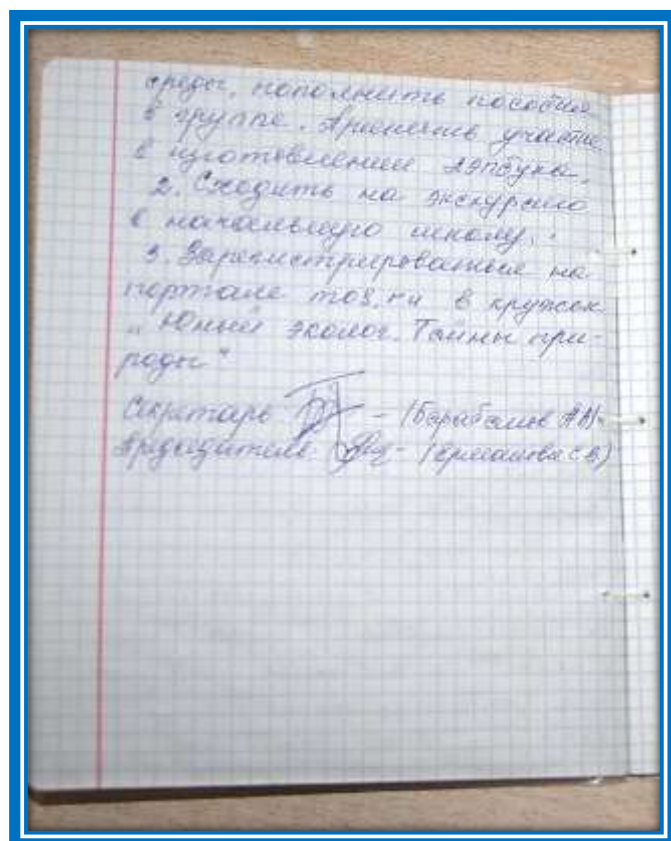 среды, пополнить пособия
в группе. Принять участие
в изготовлении лэпбука.
2. Сходить на экскурсию
в начальную школу.
3. Зарегистрироваться на
портале в кружок
„Юный эколог. Тайны при-
роды“
Секретарь - (
Председатель - (Ермакова С.В.)